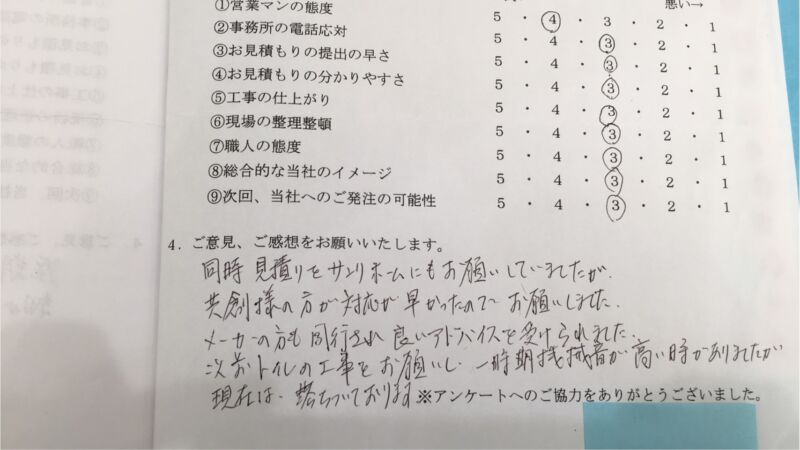 悪い→
①営業マンの態度 5 ・ 4 ・ 3 ・ 2 ・ 1
②事務所の電話応対 5 ・ 4 ・ 3 ・ 2 ・ 1
③お見積もりの提出の早さ 5 ・ 4 ・ 3 ・ 2 ・ 1
④お見積もりの分かりやすさ 5 ・ 4 ・ 3 ・ 2 ・ 1
⑤工事の仕上がり 5 ・ 4 ・ 3 ・ 2 ・ 1
⑥現場の整理整頓 5 ・ 4 ・ 3 ・ 2 ・ 1
⑦職人の態度 5 ・ 4 ・ 3 ・ 2 ・ 1
⑧総合的な当社のイメージ 5 ・ 4 ・ 3 ・ 2 ・ 1
⑨次回、当社へのご発注の可能性 5 ・ 4 ・ 3 ・ 2 ・ 1
4．ご意見、ご感想をお願いいたします。
同時見積りをサンリホームにもお願いしていましたが、
共創様の方が対応が早かったので お願いしました。
メーカーの方も同行され良いアドバイスを受けられました。
以前トイレの工事をお願いし、一時期機械音が高い時がありましたが
現在は、落ちついております ※アンケートへのご協力をありがとうございました。